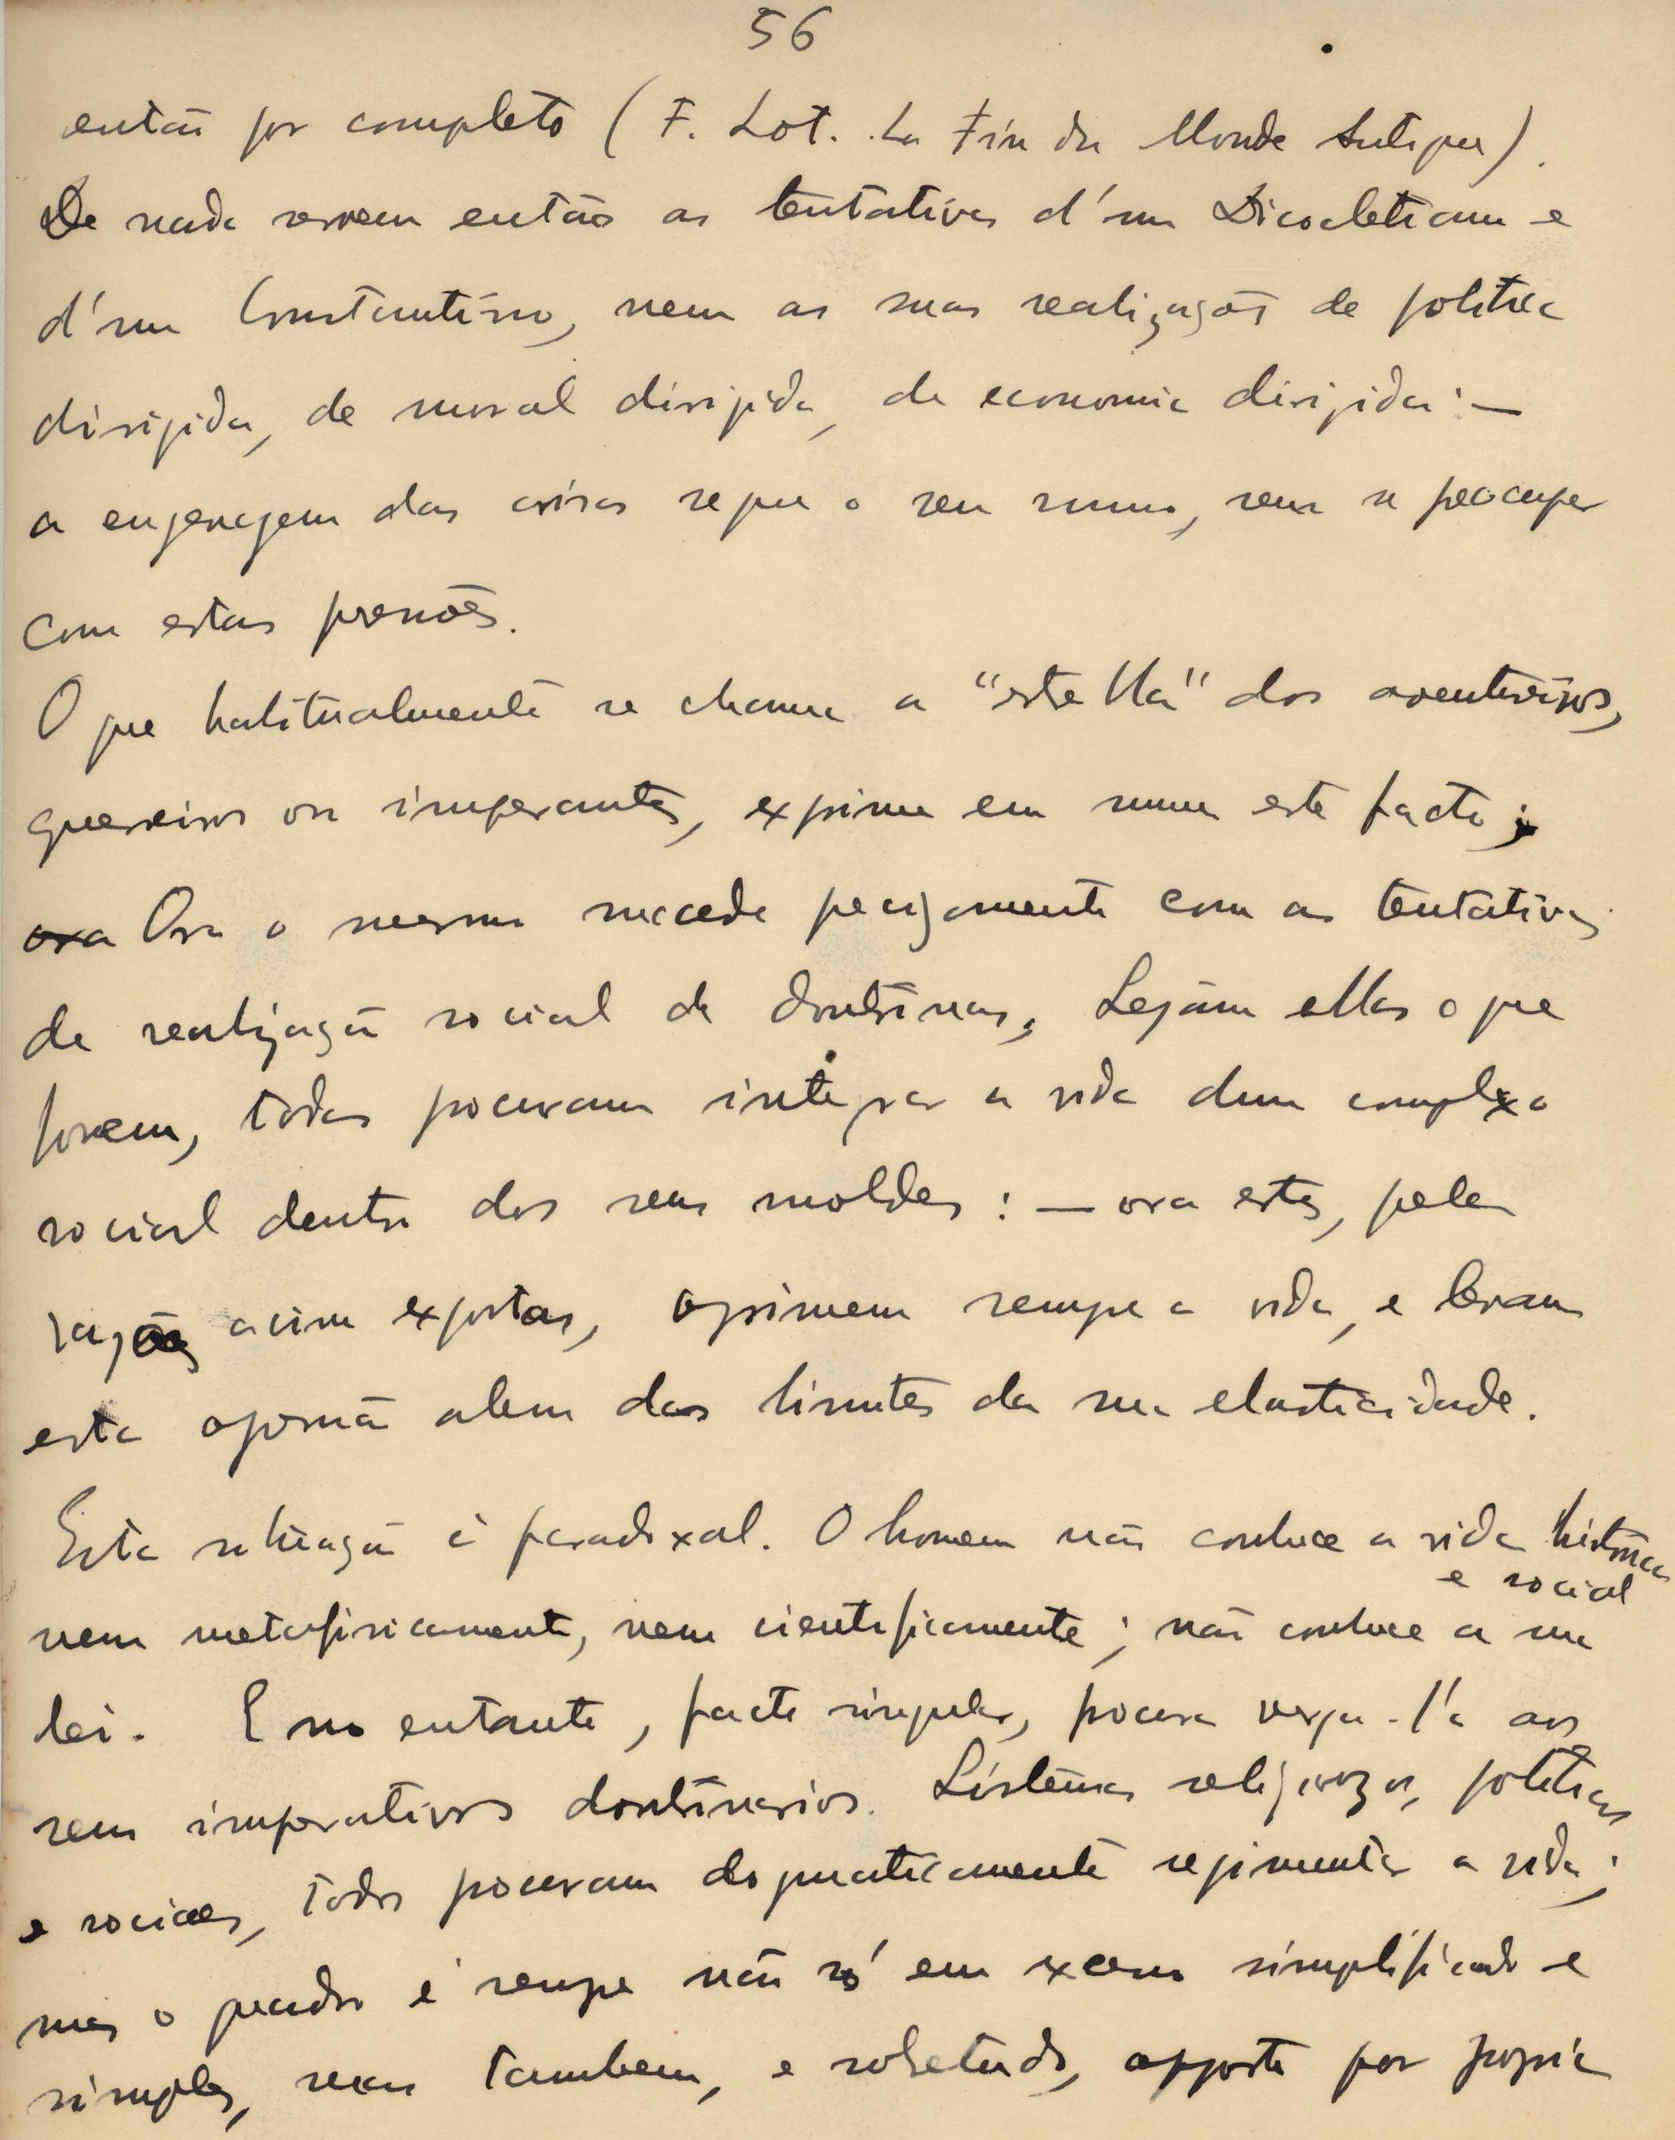 56
então por completo (F. Lot. La Fin du Monde Antique).
De nada servem então as tentativas d'um Diocletiano e
d'um Constantino, nem as suas realizações de politica
dirigida, de moral dirigida, de economia dirigida: —
a engrenagem das crises segue o seu rumo, sem se preocupar
com estas pressões.
O que habitualmente se chama a "estrella" dos aventureiros,
guerreiros ou imperantes, exprime em suma este facto;
ora Ora o mesmo succede precisamente com as tentativas
de realização social de doutrinas. Sejam ellas o que
forem, todas procuram integrar a vida dum complexo
social dentro dos seus moldes: — ora estes, pelas
razões acima expostas, oprimem sempre a vida, e levam
esta opressão alem dos limites da sua elasticidade.
Esta situação é paradoxal. O homem não conhece a vida historica
e social
nem metafisicamente, nem cientificamente; não conhece a sua
lei. E no entanto, facto singular, procura vergá-la aos
seus imperativos doutrinarios. Sistemas religiosos, politicos
e sociaes, todos procuram dogmaticamente regimentar a vida;
mas o quadro é sempre não só em excesso simplificado e
simples, mas tambem, e sobretudo, opposto por propria